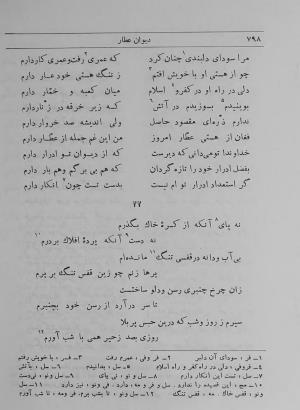 ۷۹۸ دیوان عطار
مرا سودای دلبندی چنان کرد که عمری رفت و عمری کار دارم
چو از هستی او با خویش افتم ز ننگ هستی خود عار دارم
دلی در راه او در کفر و اسلام میان کعبه و خمّار دارم
بوبنیدم بسوزیدم در آتش که زیر خرقه در زنّار دارم
ندارم ذرّه‌ای مقصود حاصل ولی اندیشه صد خروار دارم
فغان از هستی عطار امروز من این غم جمله از عطار دارم
خداوندا تو می‌دانی که دیرست که از دیوان تو ادرار دارم
بفضل ادرار خود را تازه گردان که هم بی برگم و هم بار دارم
گر استعداد ادرار توام نیست بدست تست چون انکار دارم
۲۲
نه پای آنکه از کرهٔ خاک بگذرم
نه دست آنکه پردهٔ افلاک بردرم
بی آب و دانه در قفسی تنگ مانده‌ام
پرها زنم چو زین قفس تنگ بر پرم
زان چرخ چنبری رسن و دلو ساختست
تا سر در آرد از رسن خود بچنبرم
سیرم ز روز و شب که درین حبس پر بلا
روزی بصد زحیر همی با شب آورم